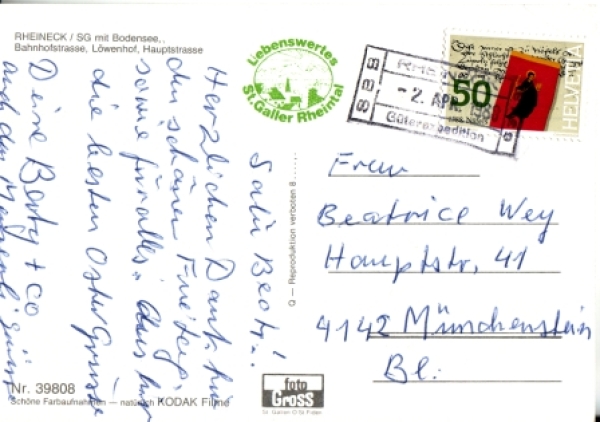 RHEINECK / SG mit Bodensee,
Bahnhofstrasse, Löwenhof, Hauptstrasse
Lebenswertes
St. Galler Rheintal
SBB
- 2. AP
Güterexpedition
50
HELVETIA
Salü Beat
Herzlichen Dank für
den schönen Freitag,
sowie für alles.
die besten Ostergrüsse
Deine Berty + Co
Frau
Beatrice Wey
Hauptstr, 41
4142 Münchenstein
Bl.
Q — Reproduktion verboten 8
Nr. 39808
Schöne Farbaufnahmen — natürlich KODAK Filme
foto
Gross
St. Gallen O St. Fiden